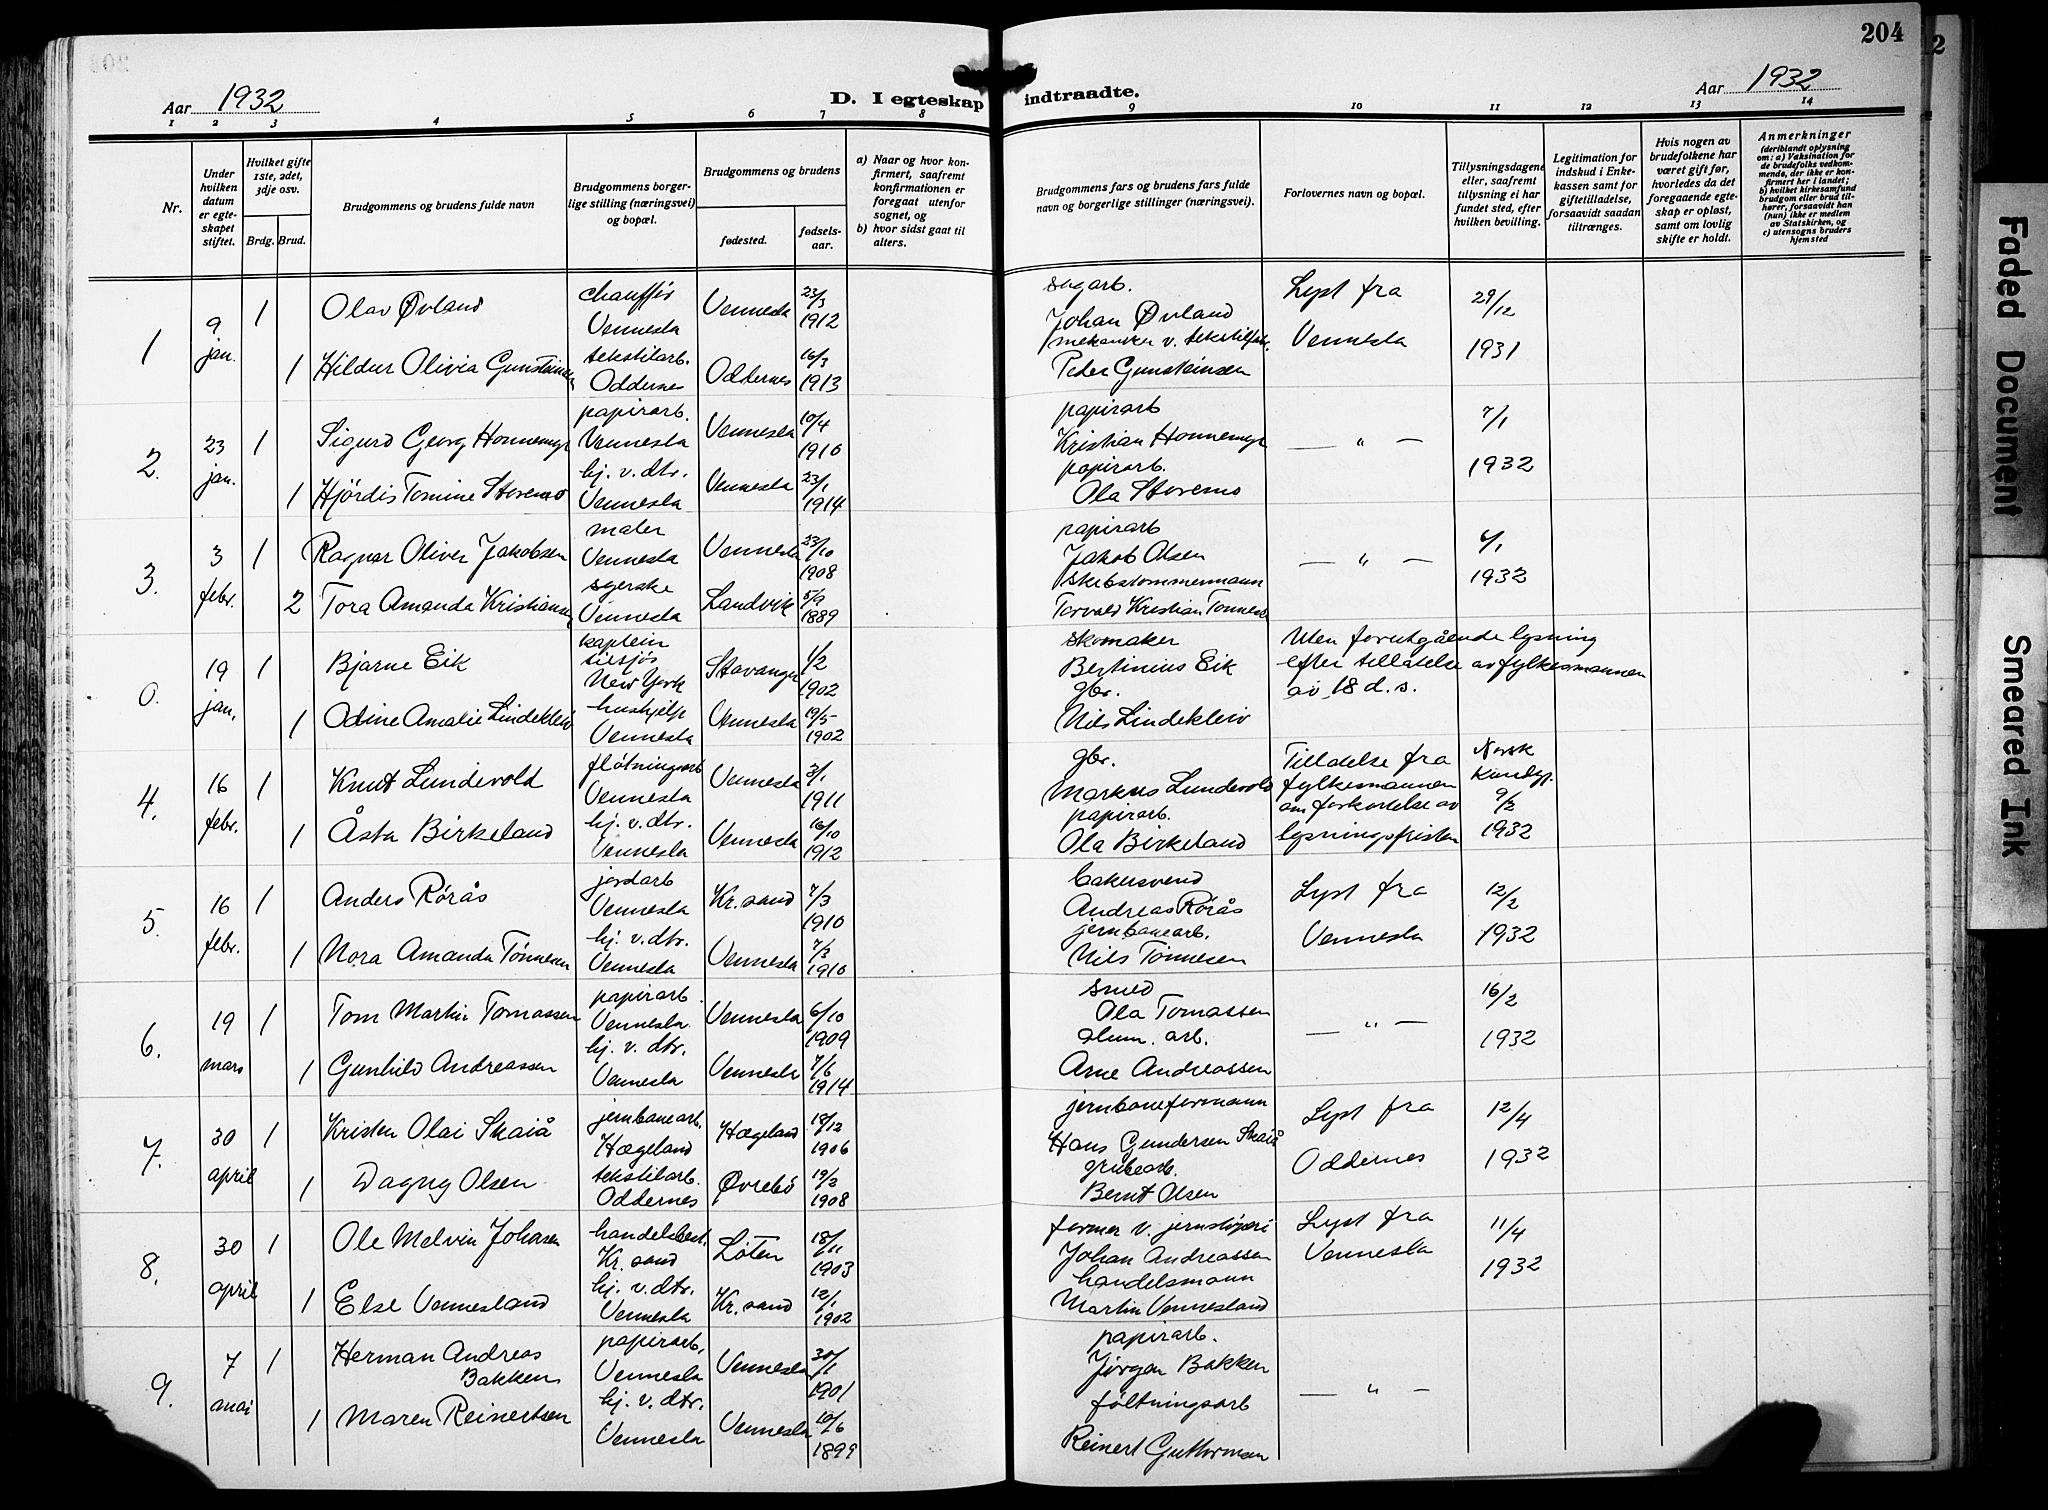 204
2
Aar 1932
D. I egteskap indtraadte.
Aar 1932
1 2 3 4 5 6 7 8 9 10 11 12 13 14
Nr.
Under hvilken datum er egteskapet stiftet.
Hvilket gifte 1ste, 2det, 3dje osv.
Brdg. Brud.
Brudgommens og brudens fulde navn
Brudgommens borgerlige stilling (næringsvei) og bopæl.
Brudgommens og brudens
fødested.
fødselsaar.
a) Naar og hvor konfirmert, saafremt konfirmationen er foregaat utenfor sognet, og
b) hvor sidst gaat til alters.
Brudgommens fars og brudens fars fulde navn og borgerlige stillinger (næringsvei).
Forlovernes navn og bopæl.
Tillysningsdagene eller, saafremt tillysning ei har fundet sted, efter hvilken bevilling.
Legitimation for indskud i Enkekassen samt for giftetilladelse, forsaavidt saadan tiltrænges.
Hvis nogen av brudefolkene har været gift før, hvorledes da det foregaaende egteskap er opløst, samt om lovlig skifte er holdt.
Anmerkninger
(deriblandt oplysning om: a) Vaksination for de brudefolks vedkommende, der ikke er konfirmert her i landet; b) hvilket kirkesamfund brudgom eller brud tilhører, forsaavidt han (hun) ikke er medlem av Statskirken, og c) utensogns bruders hjemsted
1 9 jan. 1 Olav Øvland chauffør Vennesla Vennesla 23/3 1912 sagarb. Johan Øvland Lyst fra Vennesla 29/12 1931
1 Hildur Olivia Gunsteinsen tekstilarb. Oddernes Oddernes 16/3 1913 mekaniker v. tekstilfabr. Peder Gunsteinsen
2. 23 jan. 1 Sigurd Georg Honnemyr papirarb. Vennesla Vennesla 10/4 1910 papirarb Kristian Honnemyr — " — 7/1 1932
1 Hjördis Tomine Storemo hj. v. dtr. Vennesla Vennesla 23/1 1914 papirarb. Ola Storemo
3. 3 febr. 1 Ragnar Oliver Jakobsen maler Vennesla Vennesla 23/10 1908 papirarb Jakob Olsen — " — 6/1 1932
2 Tora Amanda Kristiansen syerske Vennesla Landvik 5/9 1889 skibstømmermann Torvald Kristian Tønnesen
0. 19 jan. 1 Bjarne Eik kaptein tilsjøs New York Stavanger 1/2 1902 skomaker Bertinius Eik Uten forutgående lysning efter tillatelse av fylkesmannen av 18 d. s.
1 Odine Amalie Lindekleiv hushjelp Vennesla Vennesla 19/5 1902 gbr. Nils Lindekleiv
4. 16 febr. 1 Knut Lundevold fløtningsarb Vennesla Vennesla 3/1 1911 gbr. Markus Lundevold Tilladelse fra fylkesmannen om forkortelse av lysningsfristen Norsk Kundgj. 9/2 1932
1 Åsta Birkeland hj. v. dtr. Vennesla Vennesla 16/10 1912 papirarb. Ola Birkeland
5. 16 febr. 1 Anders Rørås jordarb Vennesla Kr. sand 7/3 1910 bakersvend Andreas Rørås Lyst fra Vennesla 12/2 1932
1 Nora Amanda Tønnesen hj. v. dtr. Vennesla Vennesla 7/3 1910 jernbanearb. Nils Tönnesen
6. 19 mars 1 Tom Martin Tomassen papirarb. Vennesla Vennesla 6/10 1909 smed Ola Tomassen — " — 16/2 1932
1 Gunhild Andreassen hj. v. dtr. Vennesla Vennesla 7/6 1914 alum. arb. Arne Andreassen
7. 30 april 1 Kristen Olai Skaiå jernbanearb. Hægeland Hægeland 18/12 1906 jernbaneformann Hans Gundersen Skaiå Lyst fra Oddernes 12/4 1932
1 Dagny Olsen tekstilarb. Oddernes Øvrebö 19/2 1908 grubearb. Bernt Olsen
8. 30 april 1 Ole Melvin Johansen handelsbest. Kr. sand Løten 18/11 1903 former v. jernstøperi Johan Andreassen Lyst fra Vennesla 11/4 1932
1 Else Vennesland hj. v. dtr. Vennesla Kr. sand 12/1 1902 handelsmann Martin Vennesland
9. 7 mai 1 Herman Andreas Bakken papirarb. Vennesla Vennesla 30/1 1901 papirarb. Jørgen Bakken — " —
1 Maren Reinertsen hj. v. dtr. Vennesla Vennesla 10/6 1899 føltningsarb Reinert Guttormsen
Faded Document
Smeared Ink